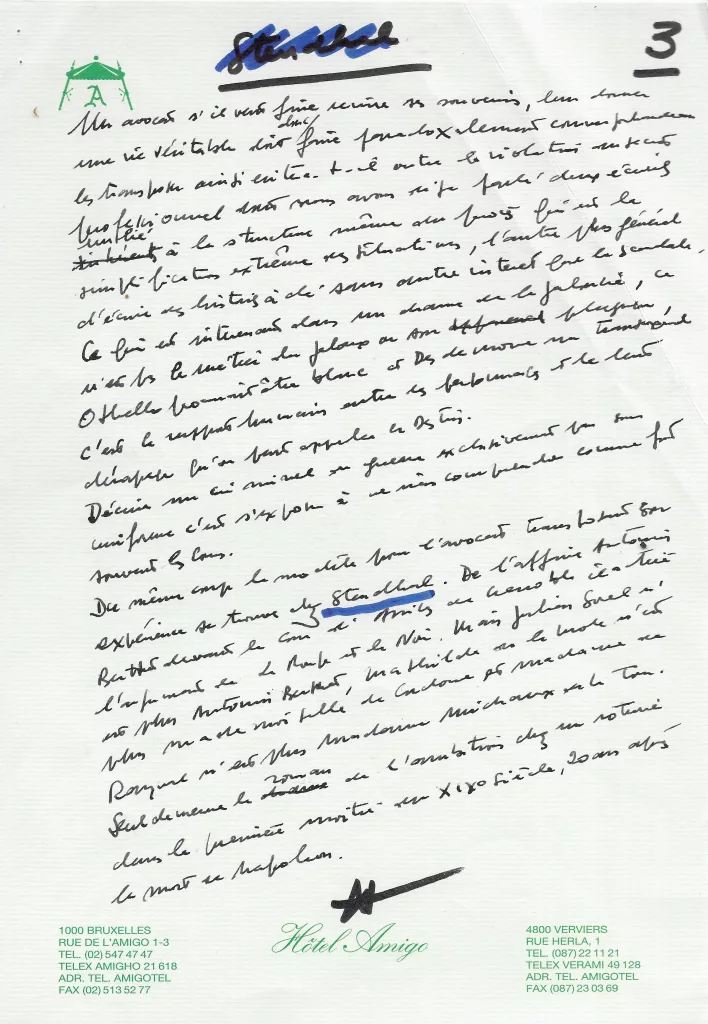 Stendhal
3
A
Un avocat s'il veut faire revivre ses souvenirs, leur donner
une vie véritable doit donc faire paradoxalement
les transposer ainsi évitera-t-il outre la violation du secret
professionnel dont nous avons déjà parlé deux écueils
l'un lié
à la structure même du procès qui est la
simplification extrême des situations, l'autre plus général
d'écrire des histoires à clé sans autre intérêt que le scandale.
Ce qui est intéressant dans un drame de la jalousie, ce
n'est pas le métier du jaloux ou son physique,
Othello pourrait être blanc et Desdemone un
c'est le rapport humain entre les personnages et le lent
dérapage qu'on peut appeler le Destin.
Décrire un criminel en guerre exclusivement par son
uniforme c'est s'expose à ne rien comprendre comme font
souvent les
Du même coup le modèle pour l'avocat transposant son
expérience se trouve chez Stendhal. De l'affaire Antoine
Berthet devant la Cour d'Assises de Grenoble il a tiré
l'argument de Le Rouge et le Noir. Mais Julien Sorel n'
est plus Antoine Berthet, Mathilde de la Mole n'est
plus mademoiselle de Cordone et madame de
Rênal n'est plus madame Michoux de la Tour.
Seul demeure le roman de l'ambition chez un roturier
dans la première moitié du XIXe Siècle, 20 ans après
la mort de Napoléon.
1000 BRUXELLES
RUE DE L'AMIGO 1-3
TEL. (02) 547 47 47
TELEX AMIGHO 21 618
ADR. TEL. AMIGOTEL
FAX (02) 513 52 77
Hôtel Amigo
4800 VERVIERS
RUE HERLA, 1
TEL. (087) 22 11 21
TELEX VERAMI 49 128
ADR. TEL. AMIGOTEL
FAX (087) 23 03 69